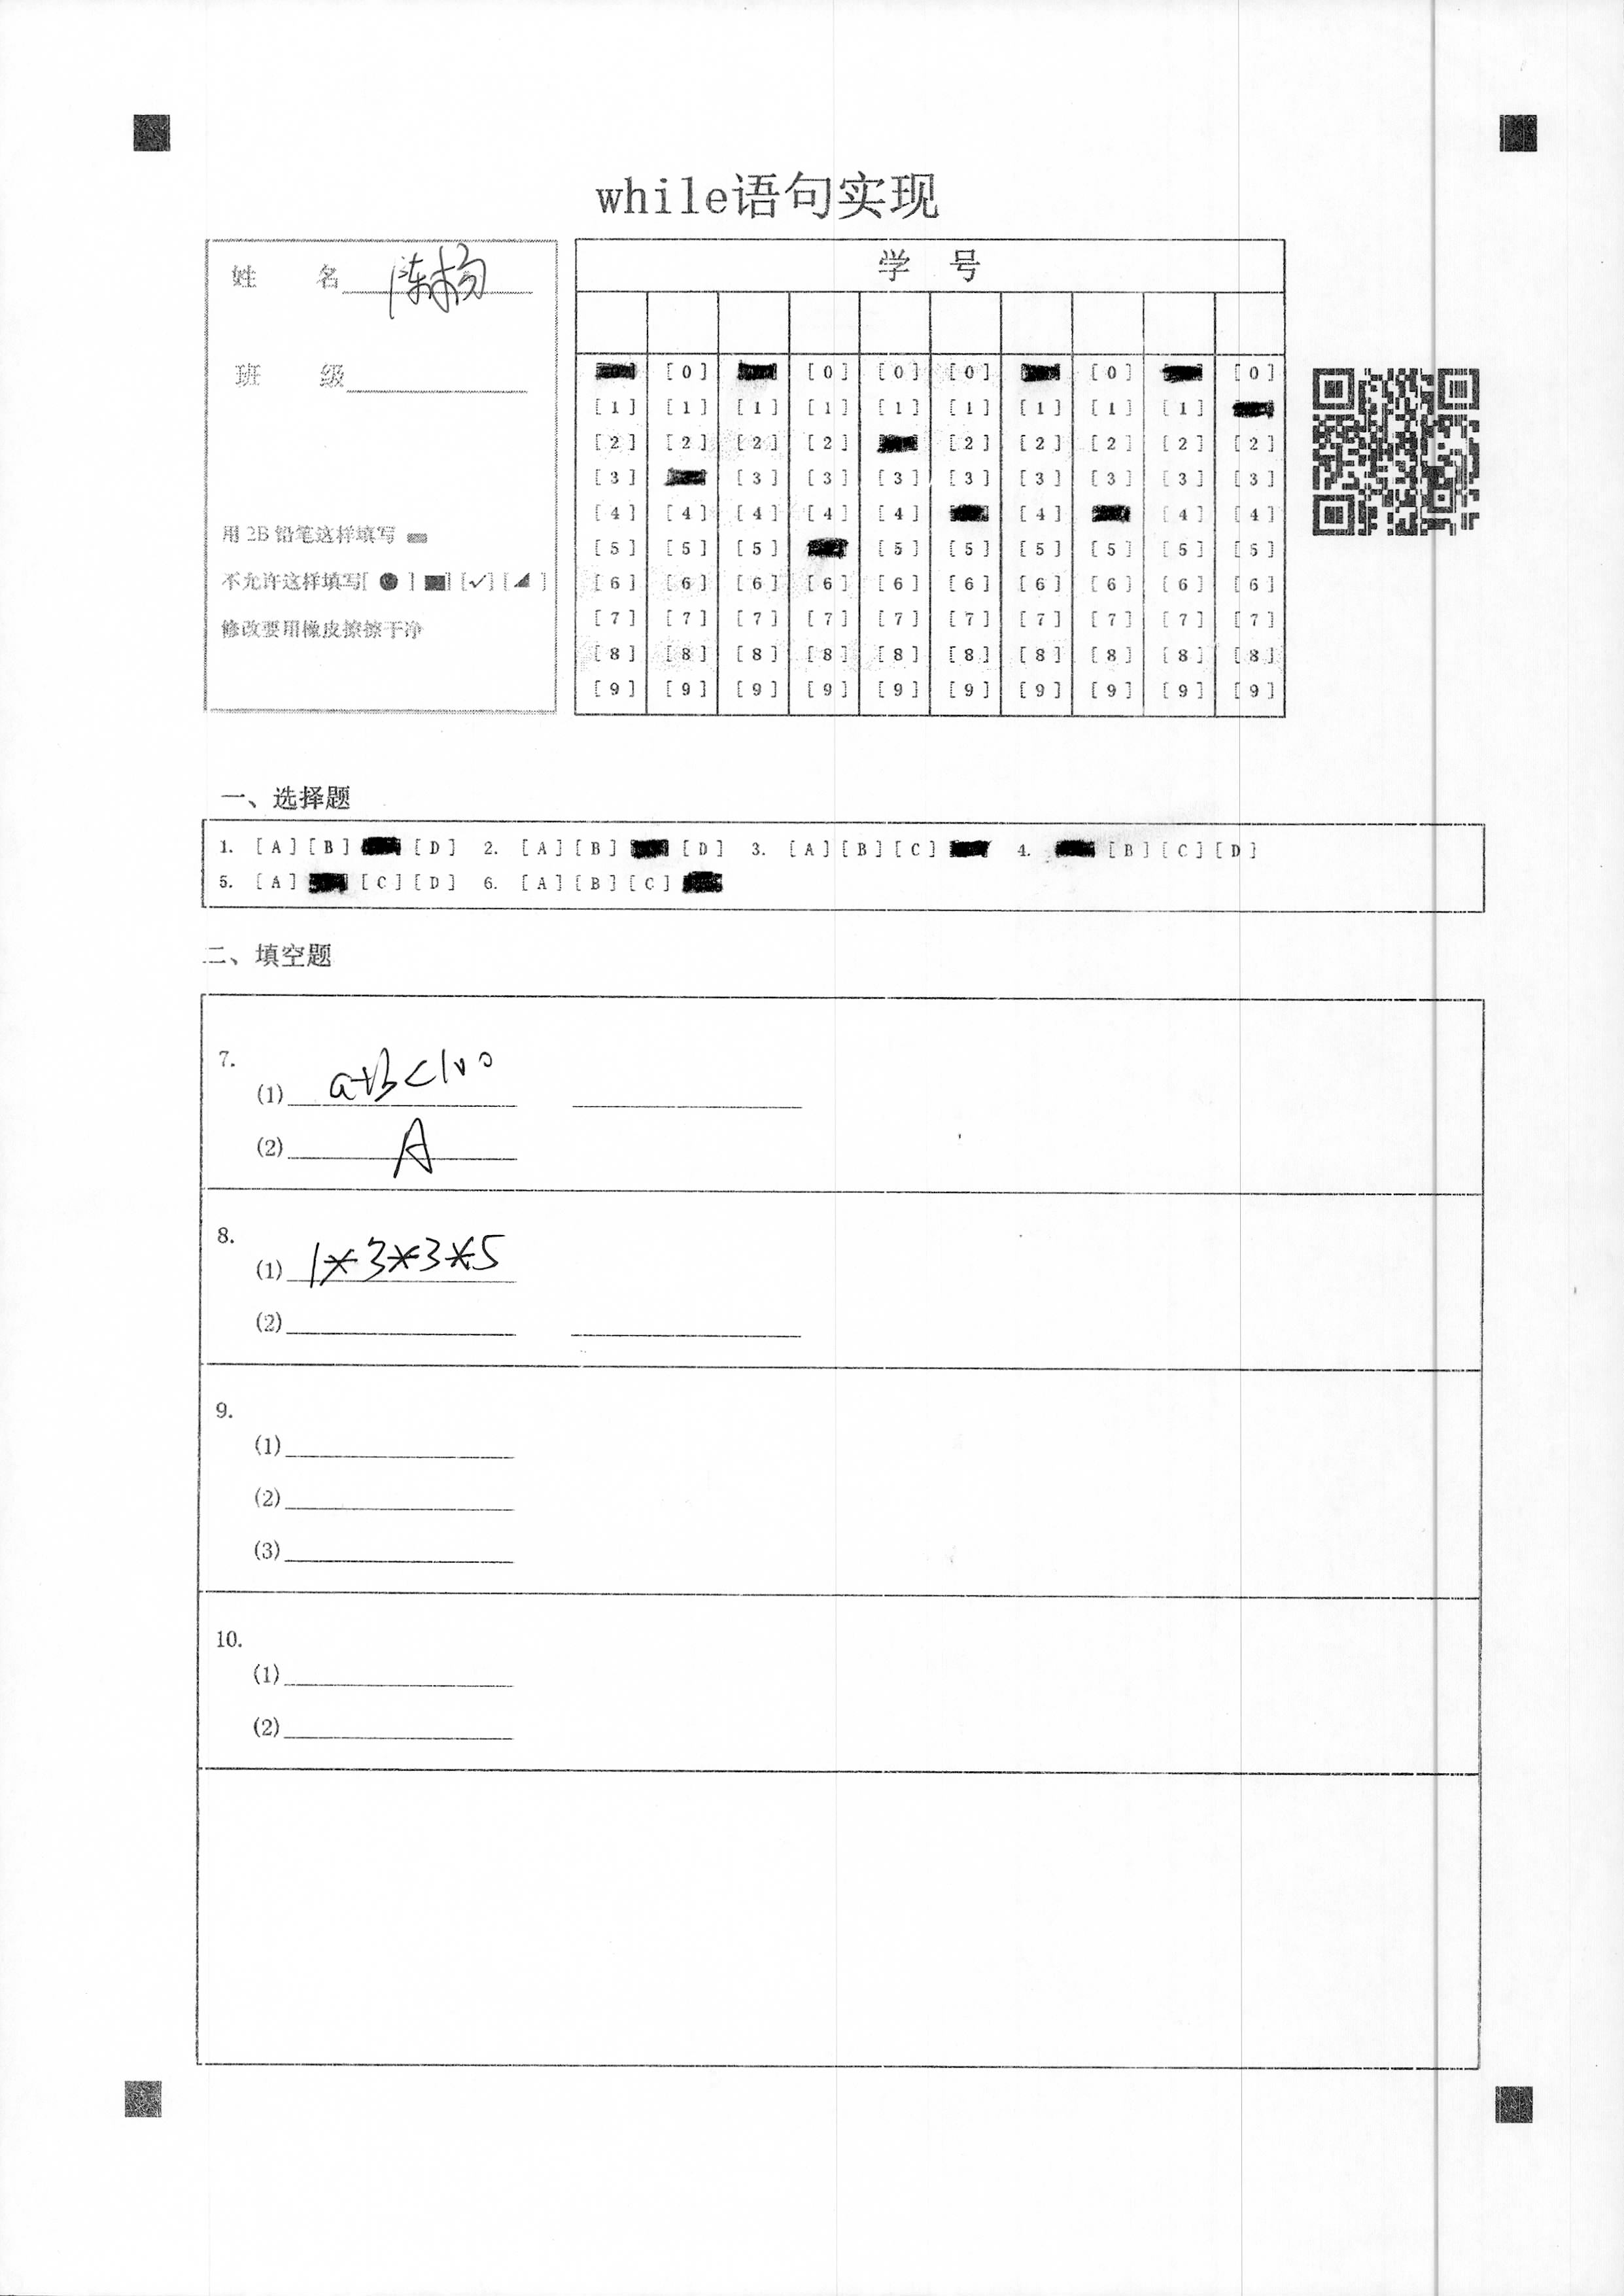 while语句实现
姓 名 陈杨
班 级
用 2B 铅笔这样填写
不允许这样填写[ ● ] [■] [✓] [◢ ]
修改要用橡皮擦擦干净
学 号
[0] [0] [0] [0] [0] [0]
[1] [1] [1] [1] [1] [1] [1] [1] [1]
[2] [2] [2] [2] [2] [2] [2] [2] [2]
[3] [3] [3] [3] [3] [3] [3] [3] [3]
[4] [4] [4] [4] [4] [4] [4] [4]
[5] [5] [5] [5] [5] [5] [5] [5] [5]
[6] [6] [6] [6] [6] [6] [6] [6] [6] [6]
[7] [7] [7] [7] [7] [7] [7] [7] [7] [7]
[8] [8] [8] [8] [8] [8] [8] [8] [8] [8]
[9] [9] [9] [9] [9] [9] [9] [9] [9] [9]
一、选择题
1. [A] [B] [D] 2. [A] [B] [D] 3. [A] [B] [C] 4. [B] [C] [D]
5. [A] [C] [D] 6. [A] [B] [C]
二、填空题
7.
(1) a+b<100
(2) A
8.
(1) 1*3*3*5
(2)
9.
(1)
(2)
(3)
10.
(1)
(2)